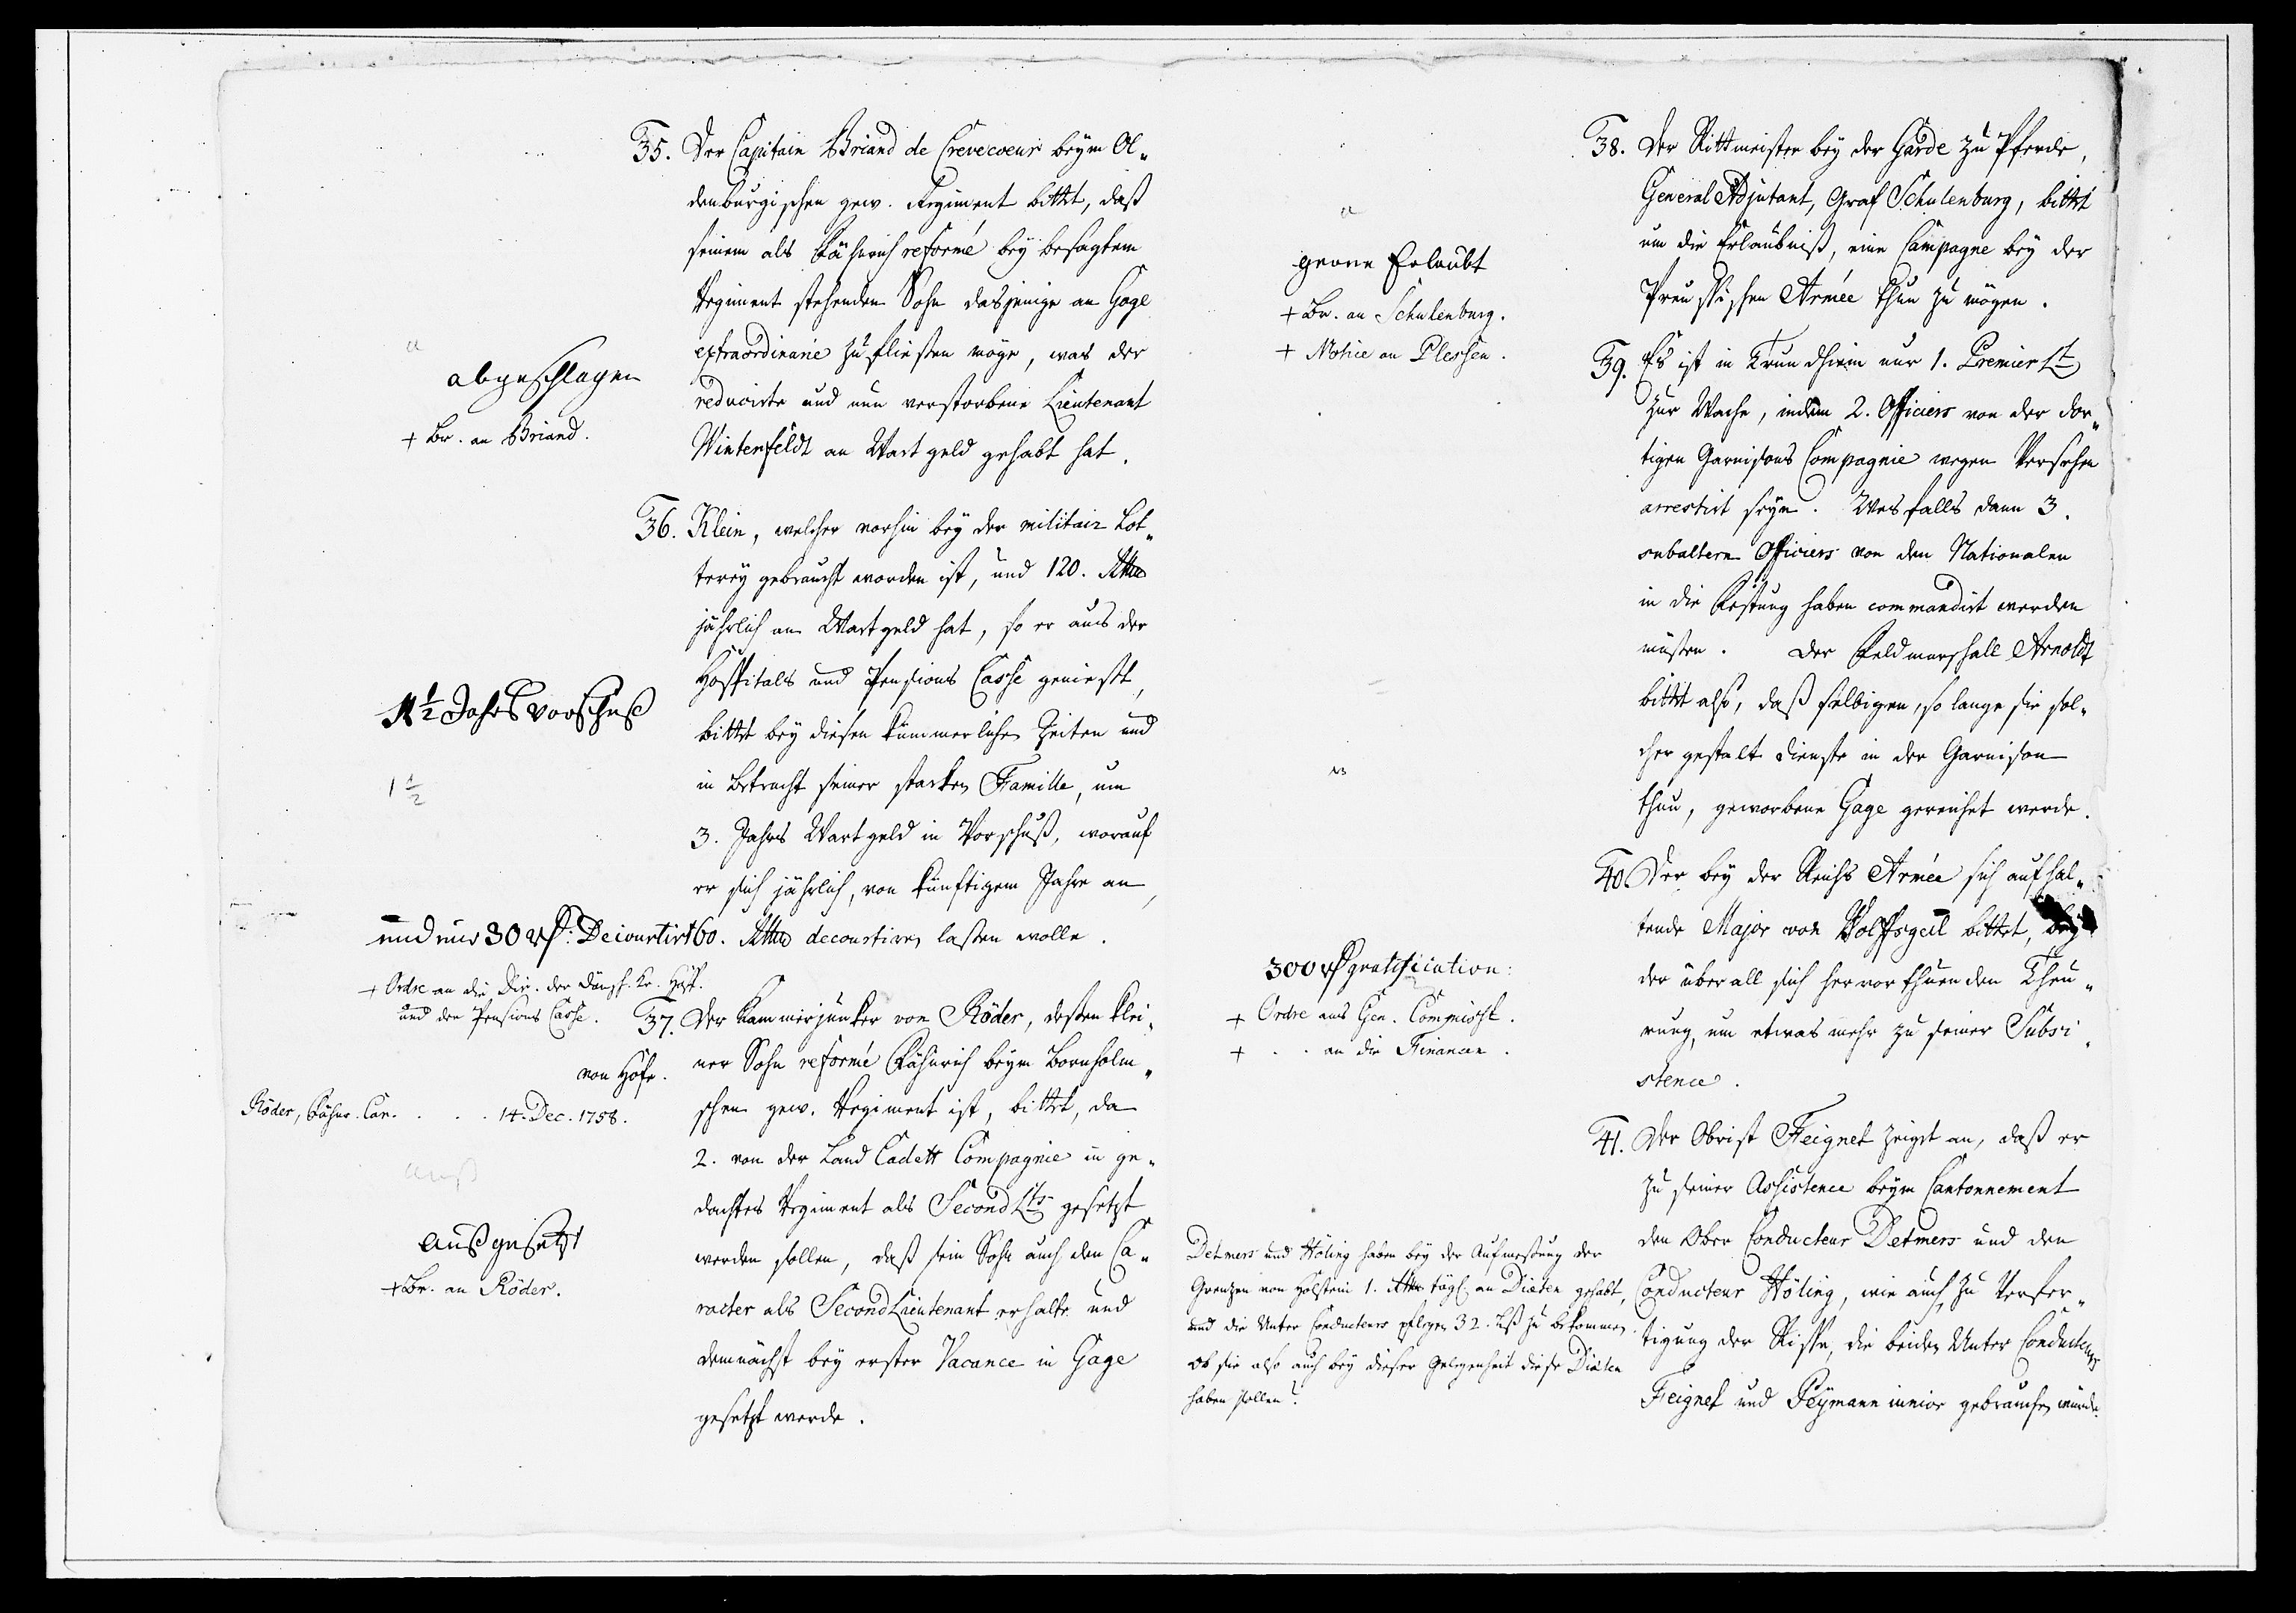 35. Der Capitain Briand de Crevecoeur beym Ol-
denburgischen gew. Regiment bittet, daß
seinem als Fähnrich reformé bey besagtem
Regiment stehenden Sohn dasjenige an Gage
extraordinarie zufließen möge, was der
reducirte und nun verstorbene Lieutenant
Winterfeldt an Wartgeld gehabt hat.
a
abgeschlagen
+ Br. an Briand.
36. Klein, welcher vorhin bey der militair Lot-
terey gebraucht worden ist, und 120. Rthlr
jährlich an Wartgeld hat, so er aus der
Hospitals und Pensions Casse genießt,
bittet bey diesen kümmerlichen Zeiten und
in Betracht seiner starken Famille, um
3. Jahrs Wartgeld in Vorschuß, worauf
er sich jährlich, von künftigem Jahre an,
60. Rthlr decourtiren laßen wolle.
1½ Jahrs vorschuß
1½
und nur 30 rf: Decourtirt
+ Ordre an die Dir. der Dänsch. Kr. Hosp.
und der Pensions Casse.
37. Der Kammerjunker von Röder, deßen klei-
ner Sohn reformé Fähnrich beym Bornholm-
schen gew. Regiment ist, bittet, da
2. von der Land Cadett Compagnie in ge-
dachtes Regiment als Second Lts gesetzt
werden sollen, daß sein Sohn auch den Ca-
racter als Second Lieutenant erhalte und
demnächst bey erster Vacance in Gage
gesetzt werde.
von Hofe.
Röder, Fähnr. Car. . . . 14. Dec. 1758.
auß
außgesetzt
+ Br. an Röder.
38. Der Rittmeister bey der Garde zu Pferde,
General Adjutant, Graf Schulenburg, bittet
um die Erlaubniß, eine Campagne bey der
Preussischen Armée thun zu mögen.
a
gerne Erlaubt
+ Br. an Schulenburg.
+ Notice an Plessen.
39. Es ist in Trundhiem nur 1. Premier Lt
zur Wache, indem 2. Officiers von der dor-
tigen Garnisons Compagnie wegen Versehen
arrestirt seyn. Wesfalls dann 3.
subaltern Officiers von den Nationalen
in die Festung haben commandirt werden
müßen. Der Feldmarschall Arnoldt
bittet also, daß selbigen, so lange sie sol-
cher gestalt Dienste in der Garnison
thun, geworbene Gage gereichet werde.
40. Der bey der Reichs Armée sich aufhal-
tende Major von Wolffsgeil bittet, bey
der überall sich hervorthuenden Theu-
rung, um etwas mehr zu seiner Subsi-
stence.
300 rf gratification:
+ Ordre ans Gen. Commisst.
+ . . an die Financen.
41. Der Obrist Feignet zeiget an, daß er
zu seiner Assistence beym Cantonnement
den Ober Conducteur Detmers und den
Conducteur Höling, wie auch zu Verfer-
tigung der Riße, die beiden Unter Conducteurs
Feignet und Peymann iunior gebrauchen würde.
Detmers und Höling haben bey der Aufmeßung der
Grenzen von Holstein 1. Rthlr tägl. an Diæten gehabt,
und die Unter Conducteurs pflegen 32. Lß zu bekommen
Ob sie also auch bey dieser Gelegenheit diese Diæten
haben sollen?